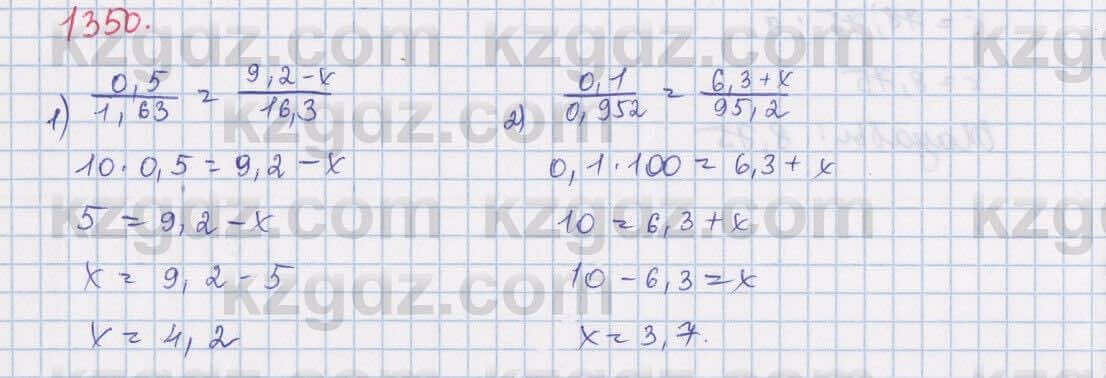 1350.
1) 0,5/1,63 = 9,2-x/16,3
10·0,5 = 9,2-x
5 = 9,2-x
x = 9,2-5
x = 4,2
2) 0,1/0,952 = 6,3+x/95,2
0,1·100 = 6,3+x
10 = 6,3+x
10-6,3 = x
x = 3,7.
kzgdz.com
kzgdz.com
kzgdz.com
kzgdz.com
kzgdz.com
kzgdz.com